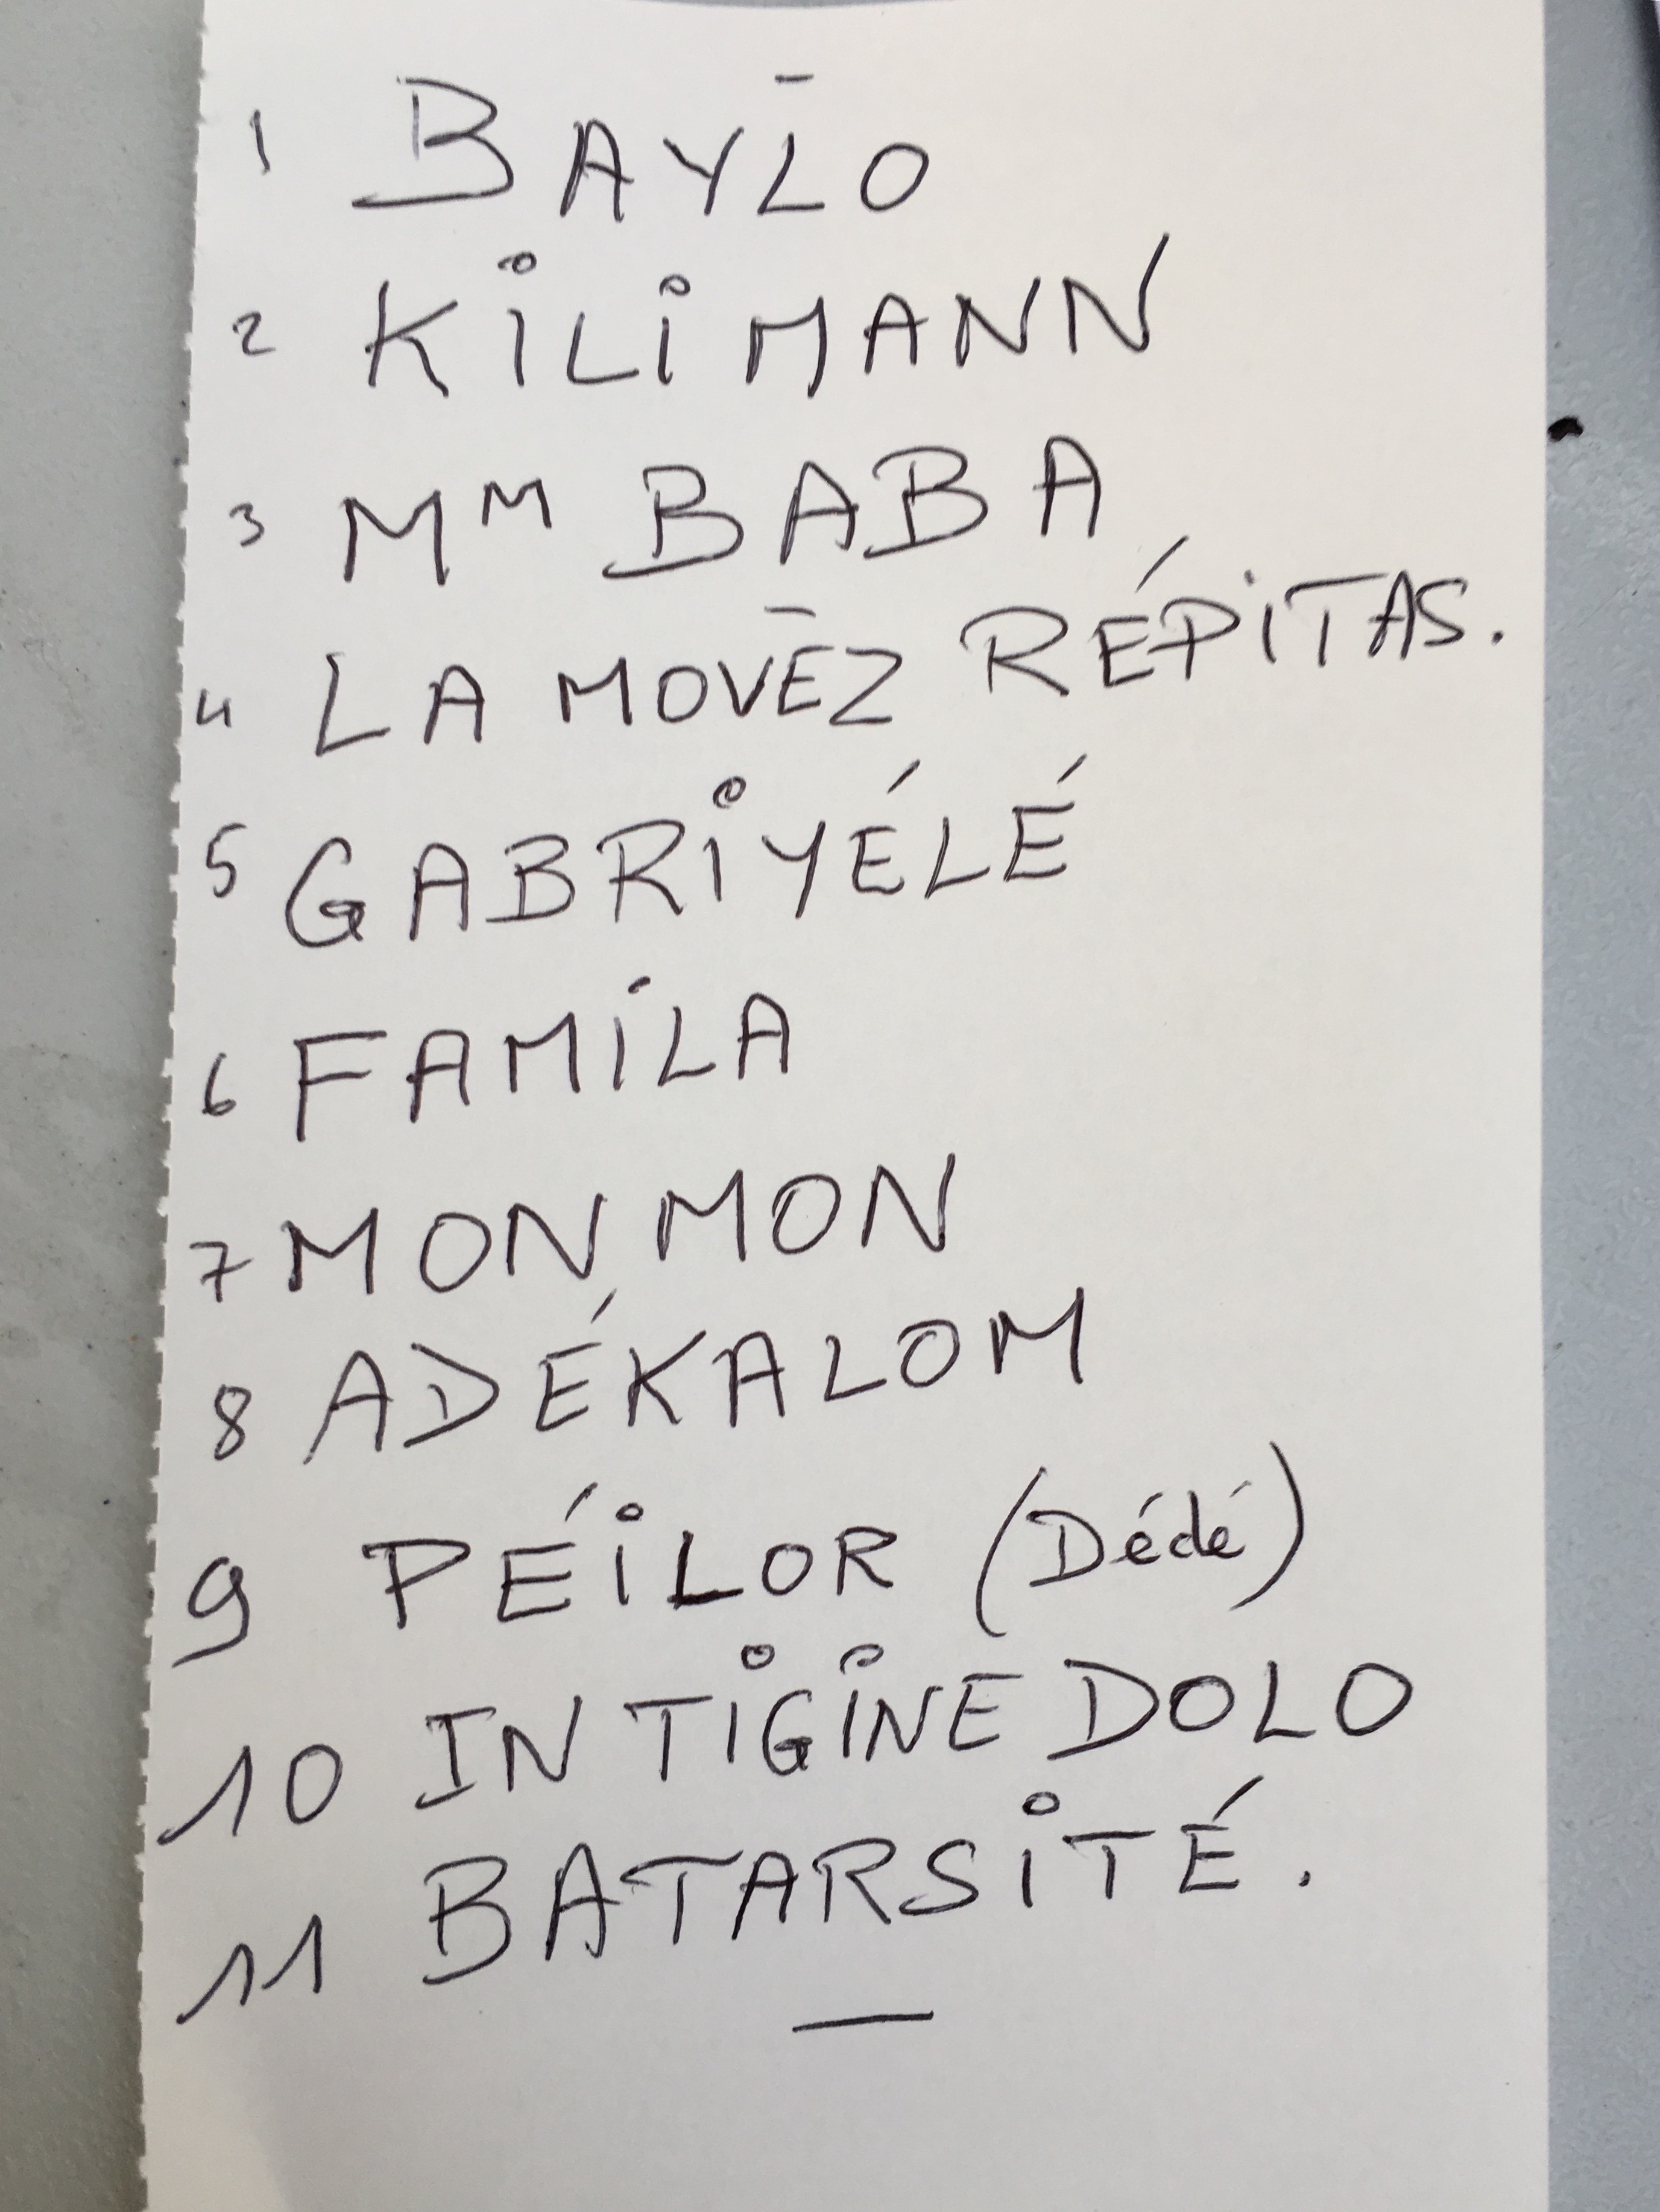 1 BAYLO
2 KiLiMANN
3 Mᴹ BABA
4 LA MOVĒZ RÉPiTAS.
5 GABRiYÉLÉ
6 FAMiLA
7 MONMON
8 ADÉKALOM
9 PÉiLOR (Dédé)
10 IN TiGiNE DOLO
11 BATARSiTÉ.